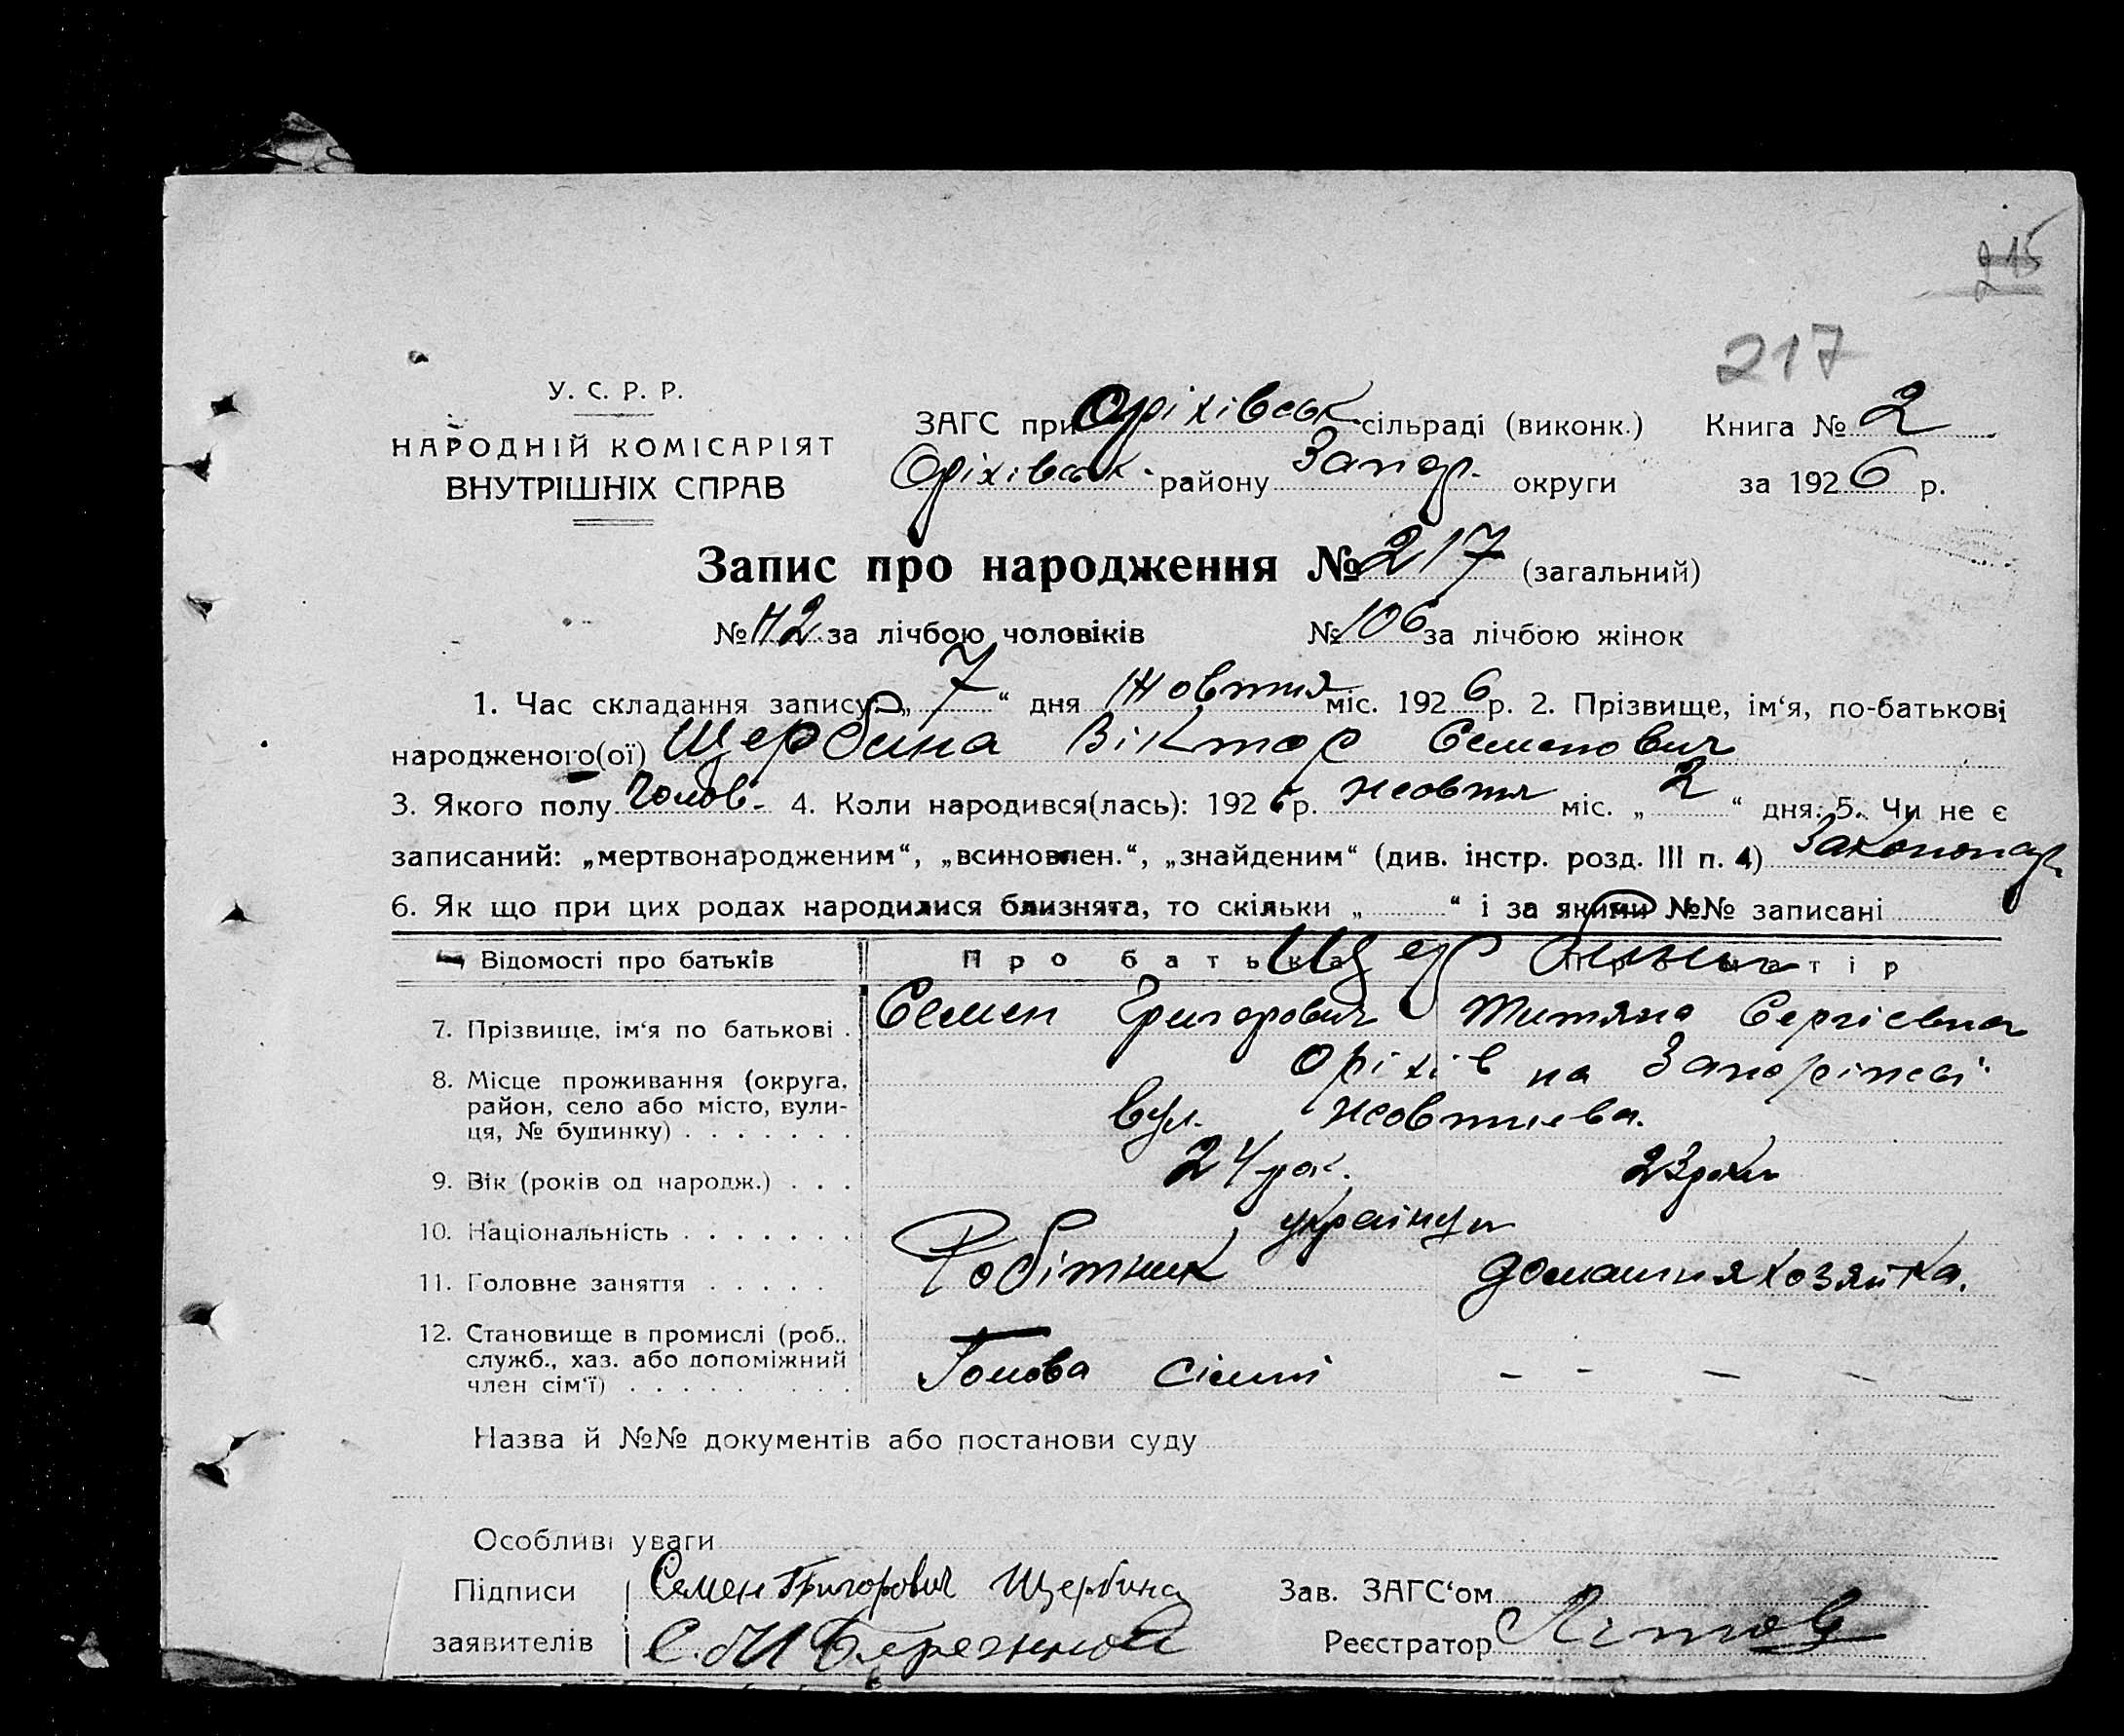 215
217
У. С. Р. Р.
НАРОДНІЙ КОМІСАРІЯТ
ВНУТРІШНІХ СПРАВ
ЗАГС при Оріхівськ сільраді (виконк.) Книга № 2
Оріхівськ. району Запор. округи за 1926 р.
Запис про народження № 217 (загальний)
№ 42 за лічбою чоловіків № 106 за лічбою жінок
1. Час складання запису: „ 7 “ дня Жовтня міс. 1926 р. 2. Прізвище, ім‘я, по-батькові
народженого(ої) Щербина Віктор Семенович
3. Якого полу Чолов. 4. Коли народився(лась): 1926 р. жовтня міс. „ 2 “ дня: 5. Чи не є
записаний: „мертвонародженим“, „всиновлен.“, „знайденим“ (див. інстр. розд. III п. 4)
6. Як що при цих родах народилися близнята, то скільки „ “ і за якими №№ записані
Відомості про батьків Про батька Про матір
Щербини
7. Прізвище, ім‘я по батькові . Семен Григорович Титяна Сергієвна
8. Місце проживання (округа, Оріхів на Запоріжсі
район, село або місто, вули- вул. Жовтнева.
ця, № будинку) . . . . . . .
9. Вік (років од народж.) . . . 24 рок. 23 роки
10. Національність . . . . . . . українци
11. Головне заняття . . . . . Робітник домашня хозяйка.
12. Становище в промислі (роб.,
служб., хаз. або допоміжний Голова сімї - - - -
член сім‘ї) . . . . . . . . .
Назва й №№ документів або постанови суду
Особливі уваги
Підписи Семен Григорович Щербина Зав. ЗАГС‘ом
заявителів С. М Бережной Реєстратор